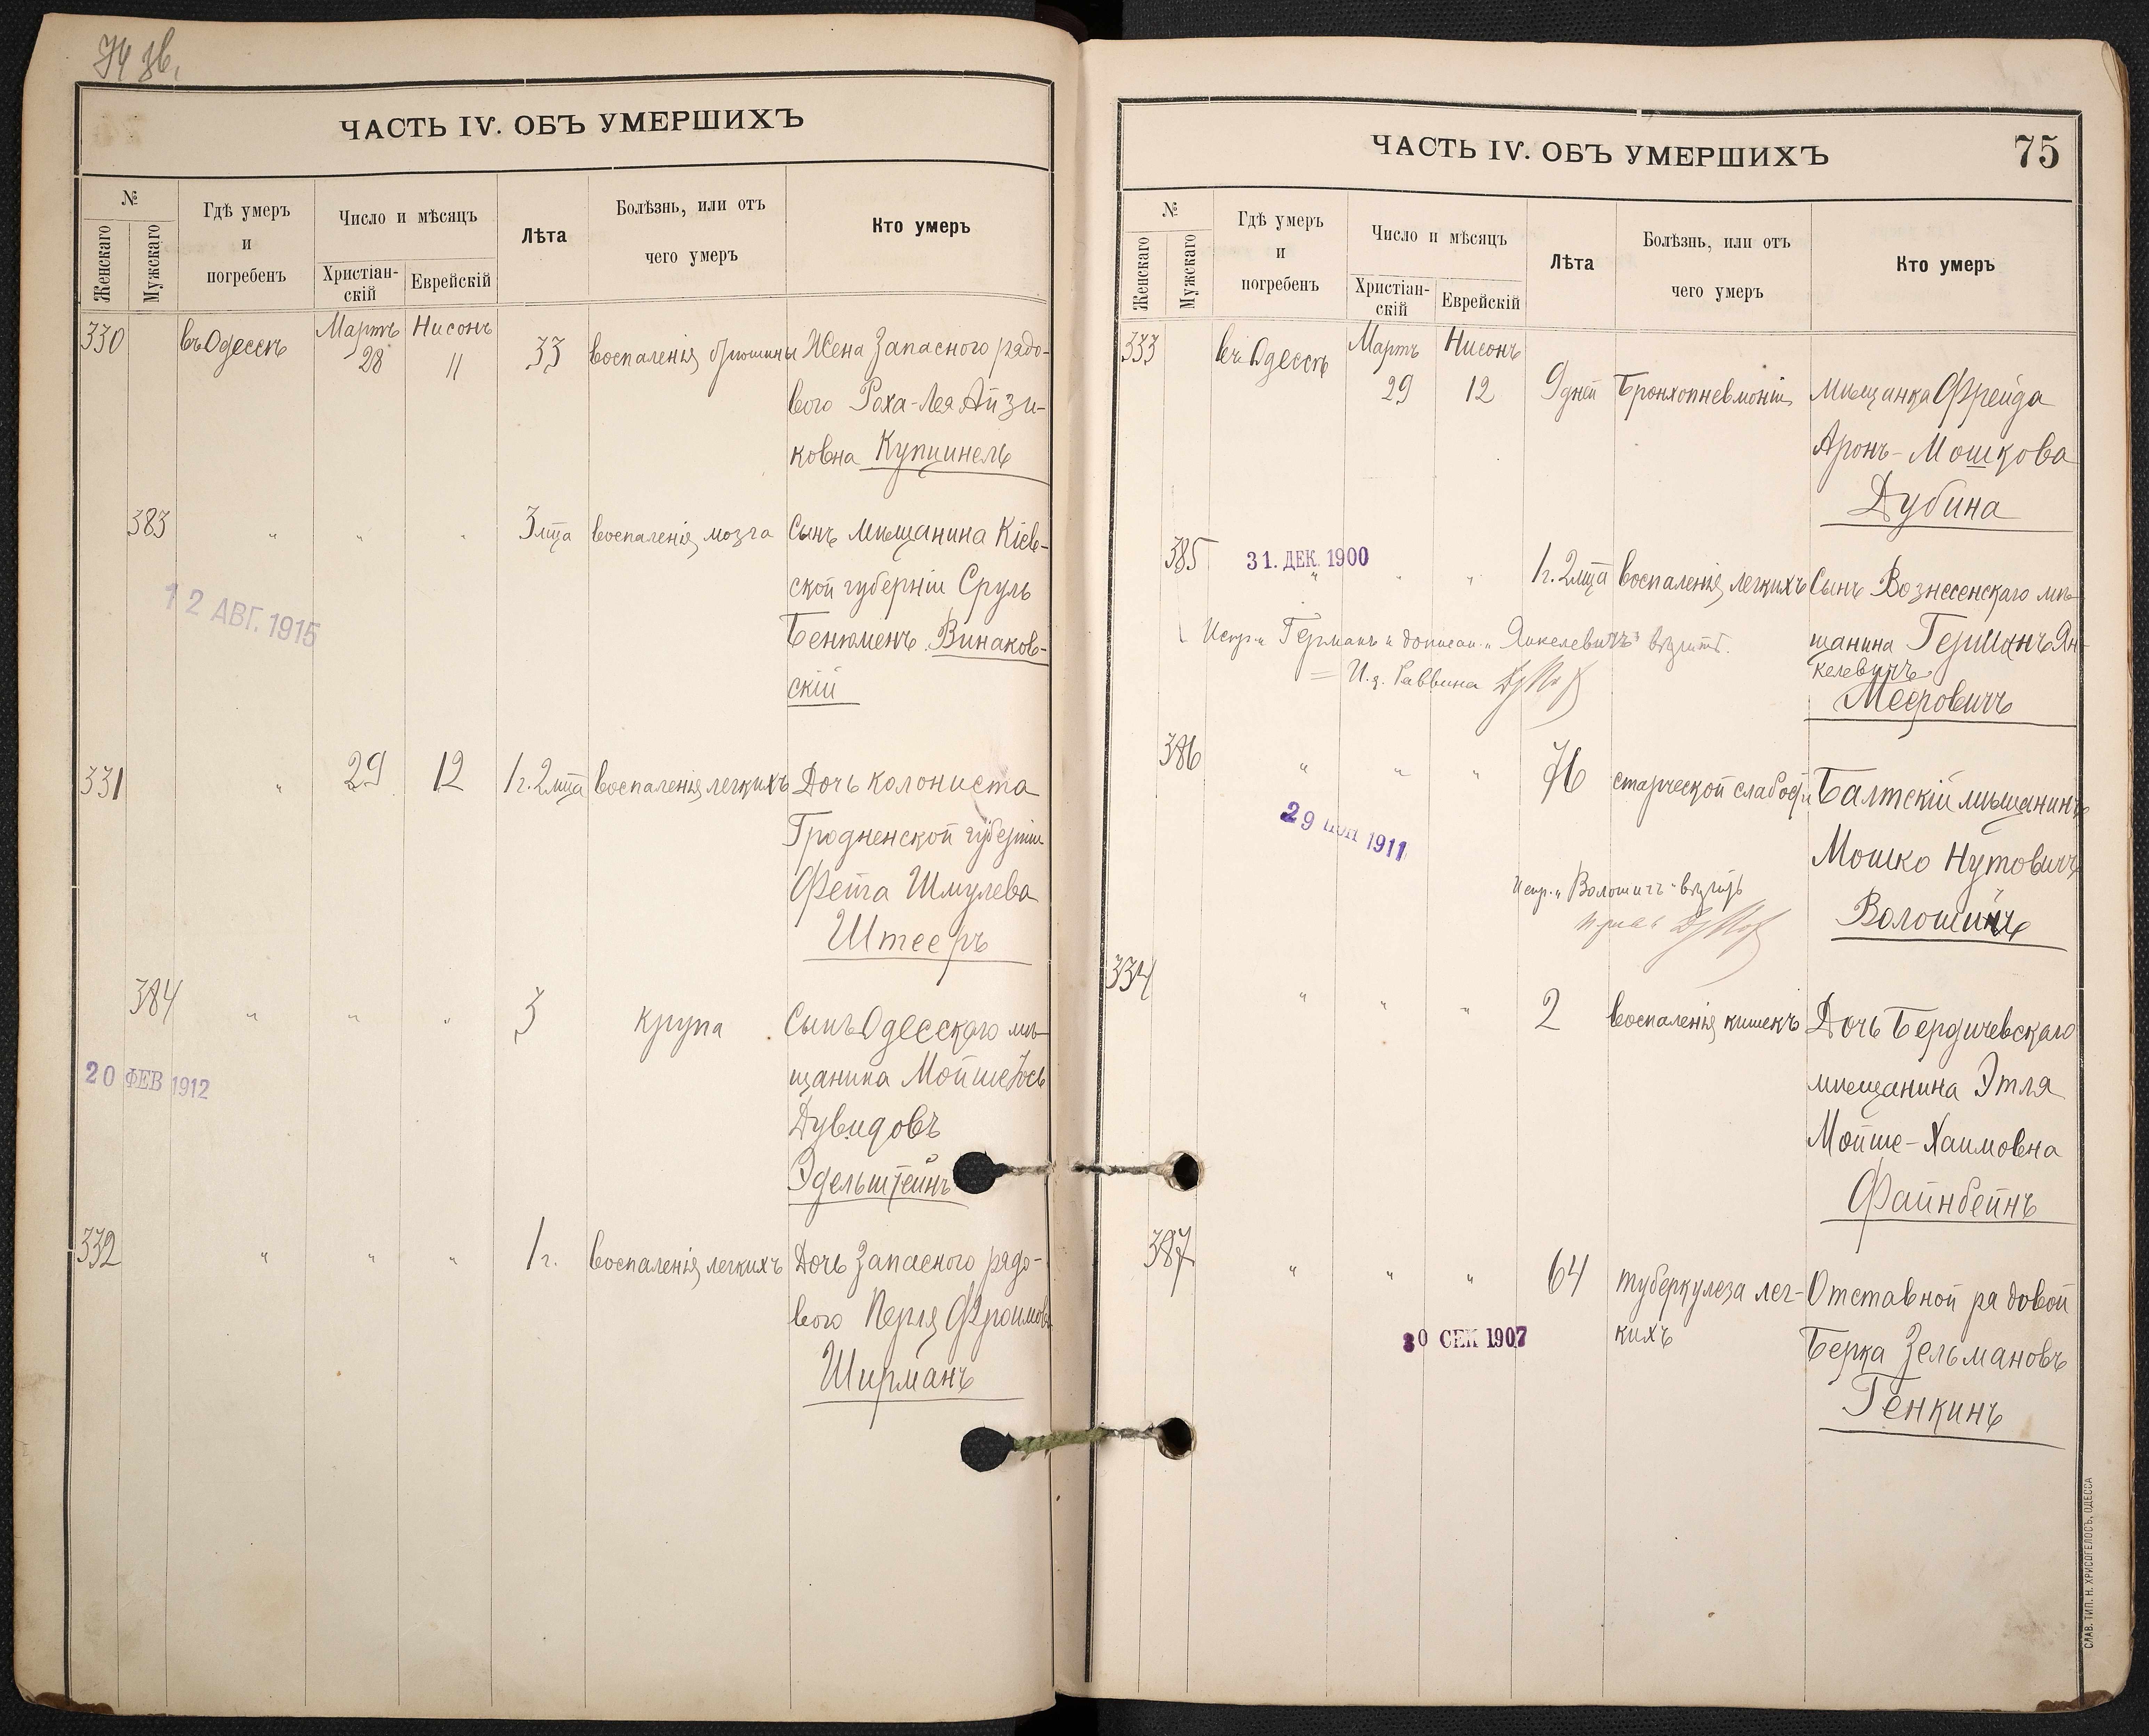 ЧАСТЬ IV. ОБЪ УМЕРШИХЪ
№
Женскаго
Мужскаго
Гдѣ умеръ
и
погребенъ
Число и мѣсяцъ
Христіан-
скій
Еврейскій
Лѣта
Болѣзнь, или отъ
чего умеръ
Кто умеръ
330 въ Одессѣ Мартъ 28 Нисонъ 11 33 воспаленія брюшины Жена Запасного рядо-
вого Роха-Лея Айзи-
ковна Купшинель
383 " " " 3 мца воспаленія мозга Сынъ мѣщанина Кіев-
ской губерніи Сруль
Бенюменъ Винаков-
скій
12 АВГ. 1915
331 " 29 12 1 г. 2 мца воспаленія легкихъ Дочь колониста
Гродненской губерніи
Фейга Шмулева
Штееръ
384 " " " 3 крупа Сынъ Одесскаго мѣ-
щанина Мойше Іось
Дувидовъ
Эдельштейнъ
20 ФЕВ 1912
332 " " " 1 г. воспаленія легкихъ Дочь Запасного рядо-
вого Перля Фроимова
Ширманъ
ЧАСТЬ IV. ОБЪ УМЕРШИХЪ
75
№
Женскаго
Мужскаго
Гдѣ умеръ
и
погребенъ
Число и мѣсяцъ
Христіан-
скій
Еврейскій
Лѣта
Болѣзнь, или отъ
чего умеръ
Кто умеръ
333 въ Одессѣ Мартъ 29 Нисонъ 12 9 дней Бронхопневмоніи Мѣщанка Фрейда
Аронъ-Мошкова
Дубина
31. ДЕК. 1900
385 " " " 1 г. 2 мца воспаленія легкихъ Сынъ Вознесенскаго мѣ-
щанина Германъ Ян-
келевичъ
Мееровичъ
Испр. "Германъ" и дописан. "Янкелевичъ" вѣрить.
И. д. Раввина
386 " " " 76 старческой слабости Балтскій мѣщанинъ
Мошко Нутовичъ
Волошинъ
1911
334 " " " 2 воспаленія кишекъ Дочь Бердичевскаго
мѣщанина Этля
Мойше-Хаимовна
Файнбейнъ
387 " " " 64 туберкулеза лег-
кихъ
Отставной рядовой
Берка Зельмановъ
Генкинъ
30 СЕН 1907
СЛАВ. ТИП. Н. ХРИСОГЕЛОСЪ, ОДЕССА